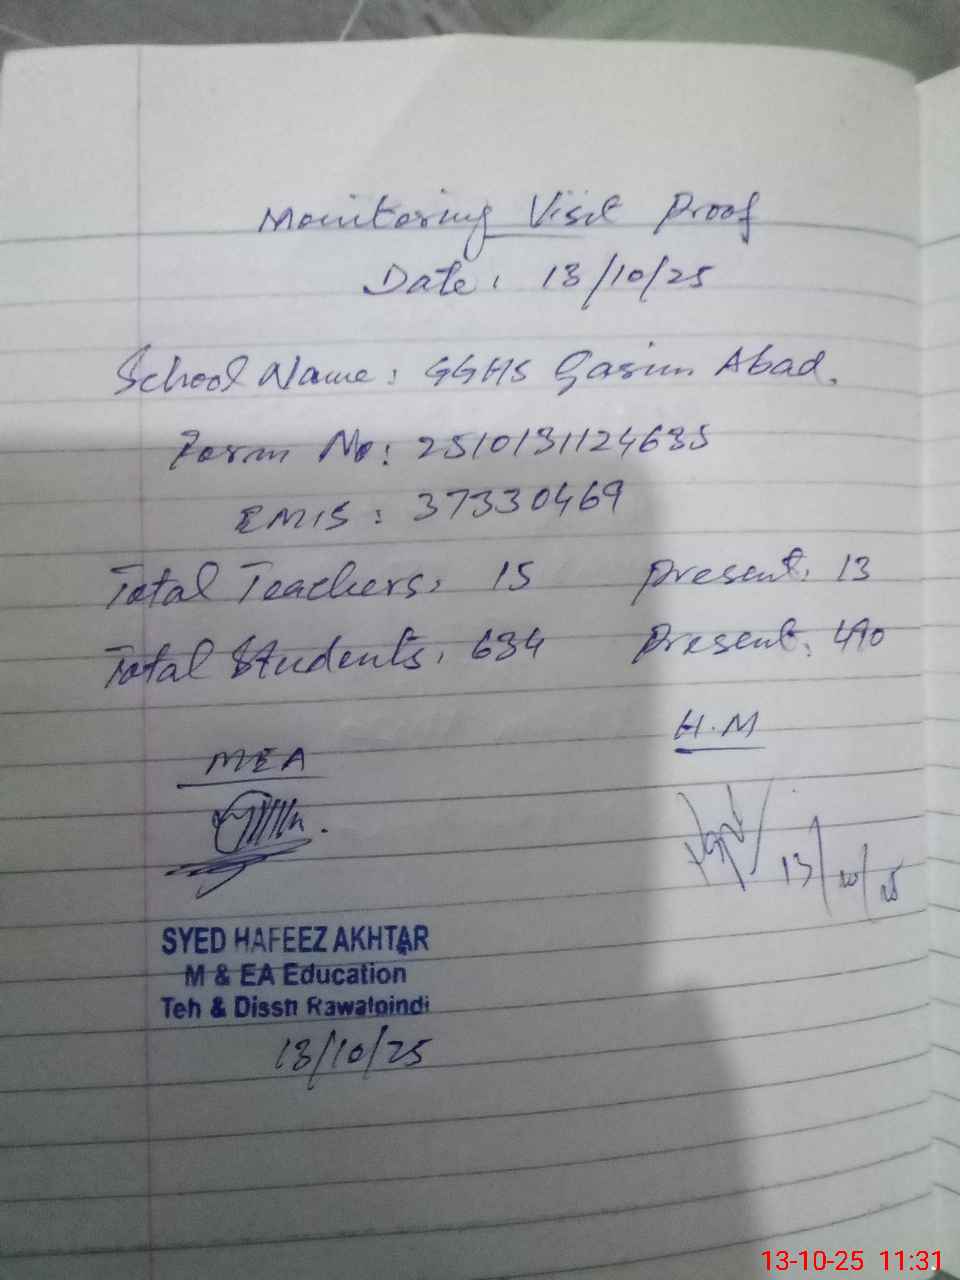 Monitoring Visit Proof
Date: 13/10/25
School Name: GGHS Qasim Abad.
Form No: 2510131124635
EMIS: 37330469
Total Teachers: 15 Present: 13
Total Students: 634 Present: 490
H.M
MEA
13/10/25
SYED HAFEEZ AKHTAR
M & EA Education
Teh & Dissti Rawalpindi
13/10/25
13-10-25 11:31